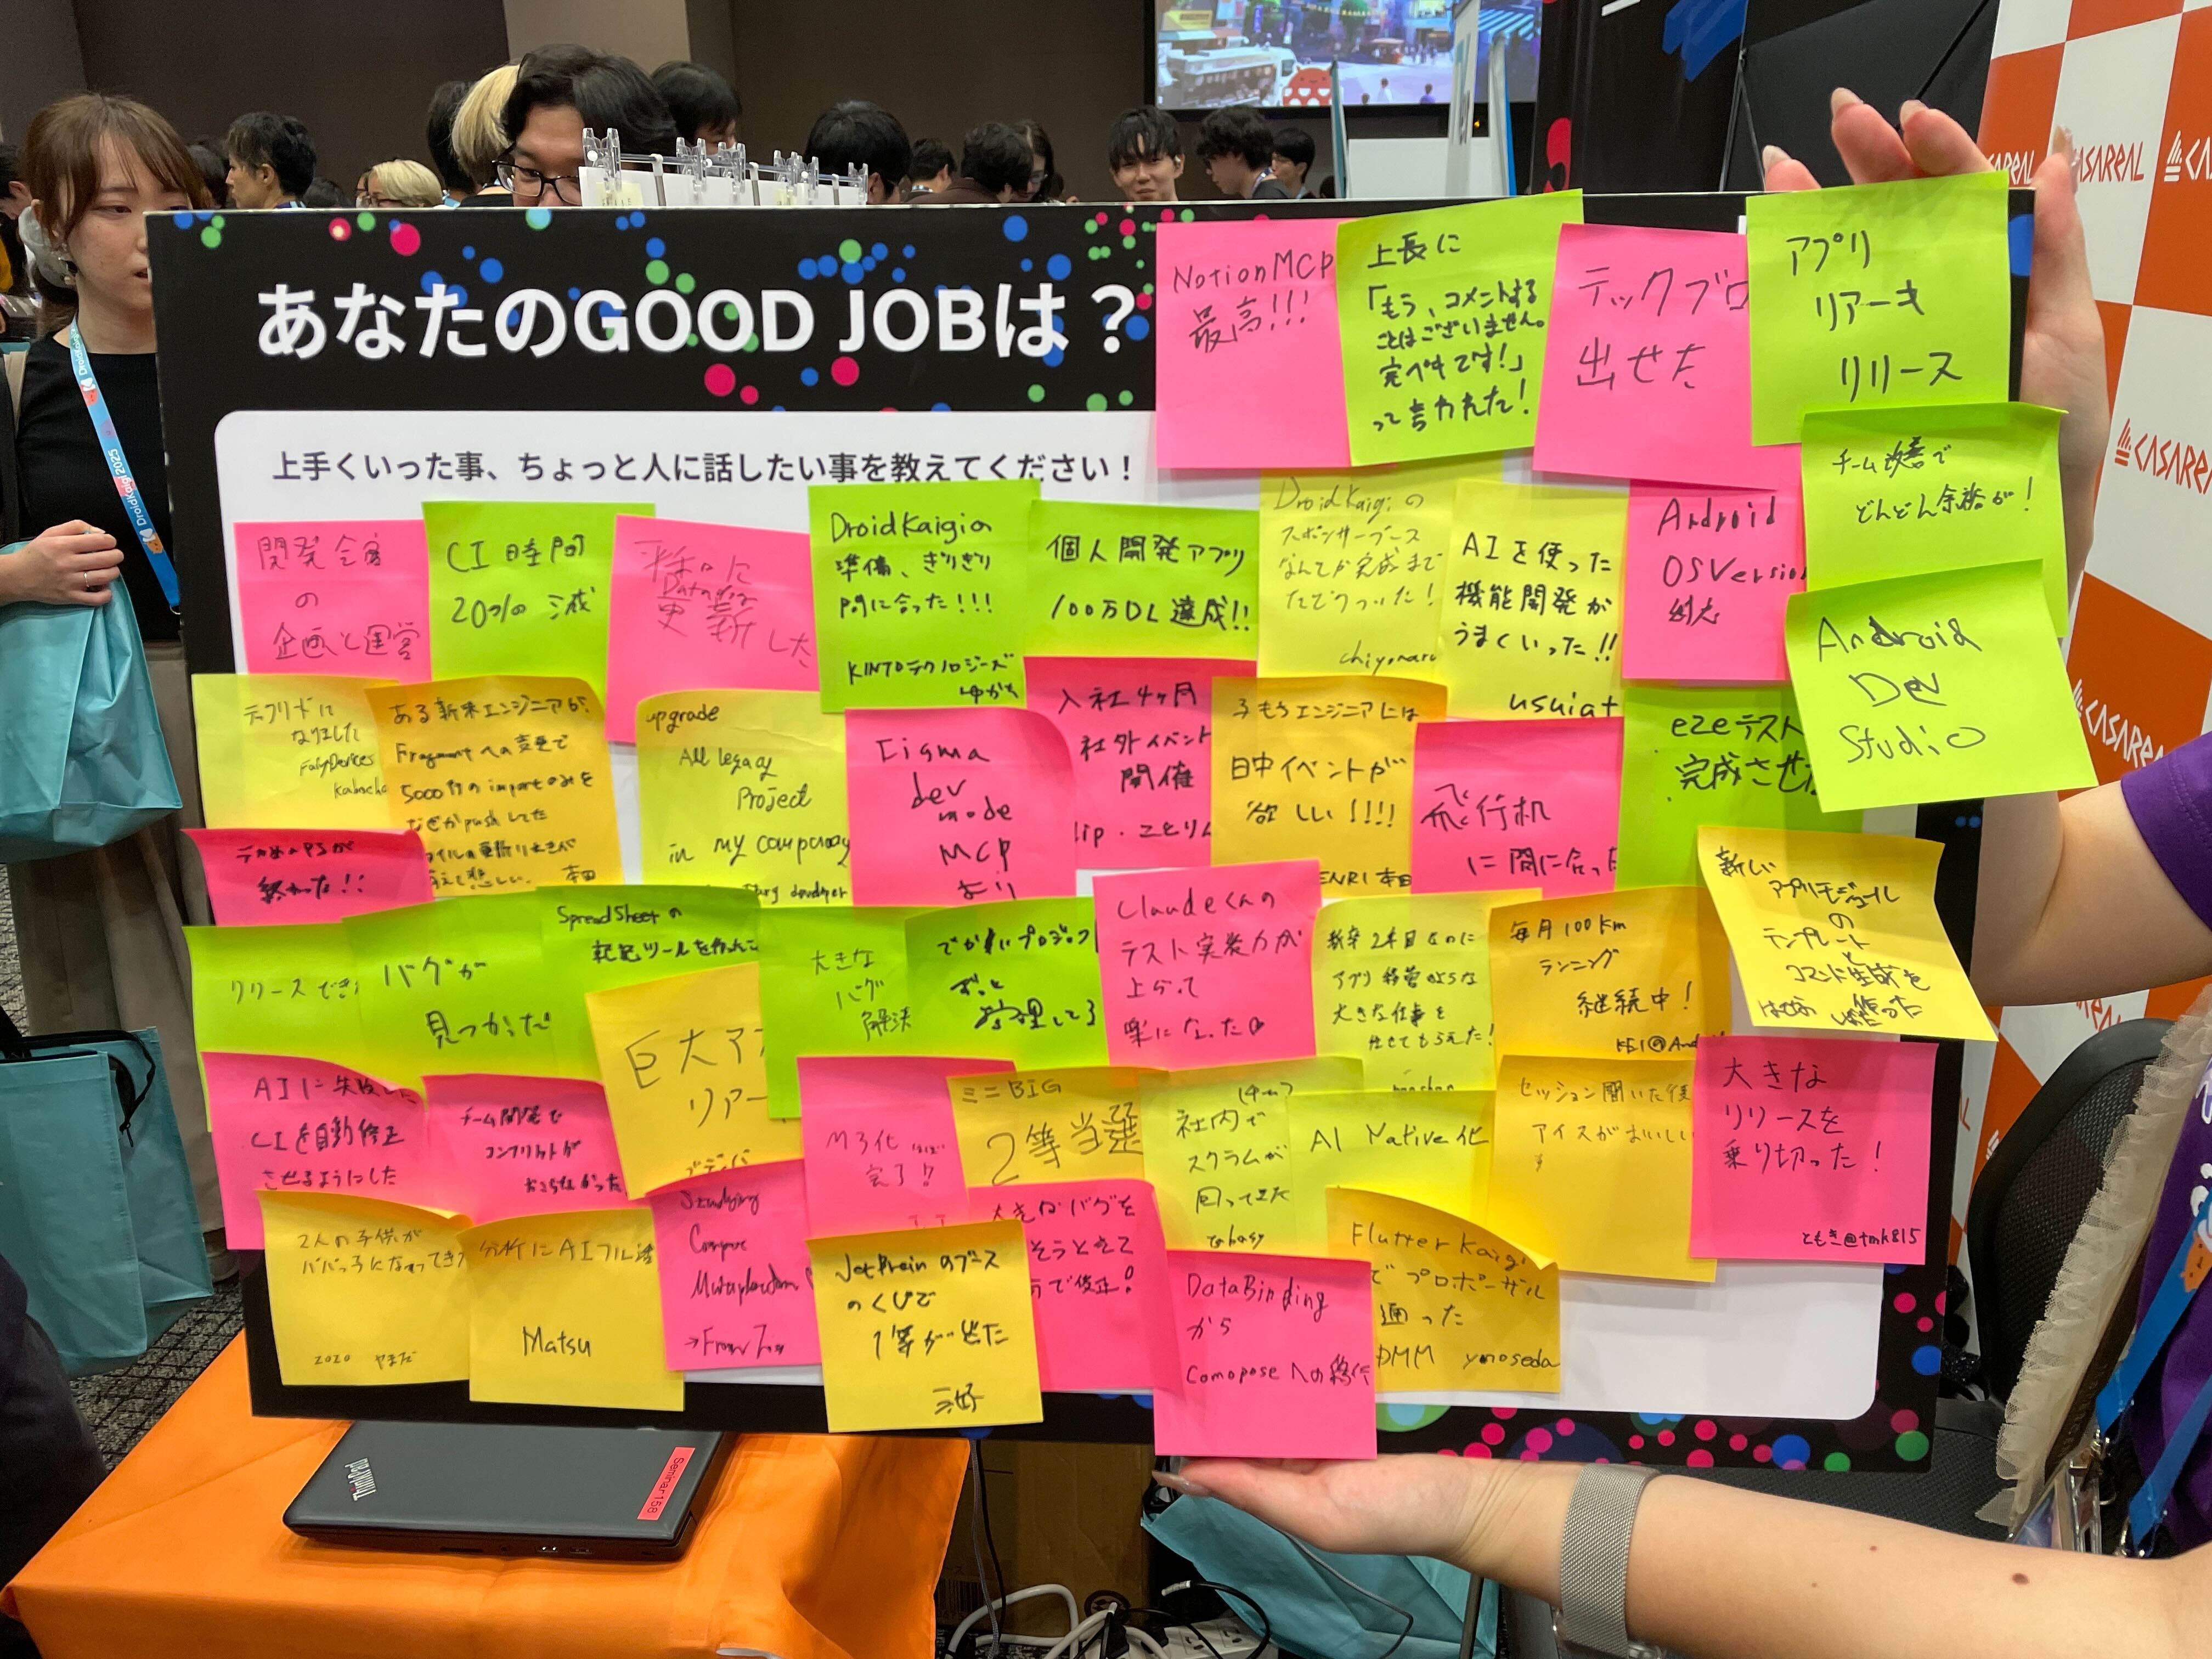 あなたのGOOD JOBは？
上手くいった事、ちょっと人に話したい事を教えてください！
NotionMCP
最高!!!
上長に
「もう、コメントする
ことはございません。
完ペキです！」
って言われた！
テックブロ
出せた
アプリ
リアーキ
リリース
チーム改善で
どんどん
が！
開発
の
企画と運営
CI時間
20%減
更新した
DroidKaigiの
準備、ぎりぎり
間に合った!!!
KINTOテクノロジーズ
ゆかち
個人開発アプリ
100万DL達成!!
DroidKaigiの
スポンサーブース
なんとか完成まで
chiyonaru
AIを使った
機能開発が
うまくいった!!
usuiat
Android
OSVersion
Android
Dev
Studio
テックリードに
なりました
kabocha
ある新米エンジニアが、
Fragmentへの変更で
5000行のimportのみを
なぜかpushしてた
悲しい. 本田
upgrade
All legacy
Project
in my company
Figma
dev
mode
MCP
入社4ヶ月
社外イベント
開催
子もちエンジニアには
日中イベントが
欲しい!!!!
ENRI 本田
飛行机
に間に合った
e2eテスト
完成させた
終わった!!
リリースでき
バグが
見つかった
SpreadSheetの
転記ツールを作った
大きな
バグ
解決
でかいプロジェクト
ずっと
管理してる
Claudeくんの
テスト実装力が
上がって
楽になった
新卒2年目なのに
アプリ
のような
大きな仕事を
任せてもらえた！
毎月100km
ランニング
継続中！
KEI@Andr
新しい
アプリモジュール
の
テンプレート
と
コマンド生成を
作った
AIに失敗した
CIを自動修正
させるようにした
チーム開発で
コンフリクトが
おこらなかった
巨大ア
リアー
M3化ほぼ
完了!!
ミニBIG
2等当選
(チーム)
社内で
スクラムが
回ってきた
AI Native化
セッション聞いた後
アイスがおいしい
す
大きな
リリースを
乗り切った！
ともき@tmk815
2人の子供が
パパっ子になってきた
2020 やまだ
分析にAIフル活
Matsu
Studying
Compose
Multiplatform
JetBrainのブース
のくじで
1等が出た
三好
大きなバグを
で修正！
DataBinding
から
Comopose への移行
FlutterKaigi
でプロポーザル
通った
DMM ynoseda
DroidKaigi2025
ThinkPad
Seminar158
CASAREAL
CASAREAL
CASAREAL